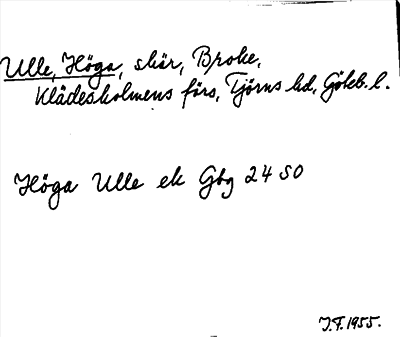 Ulle, Höga, skär, Broke,
Klädesholmens förs, Tjörns hd, Göteb. l.
Höga Ulle ek Gbg 24 SO
J.F. 1955.